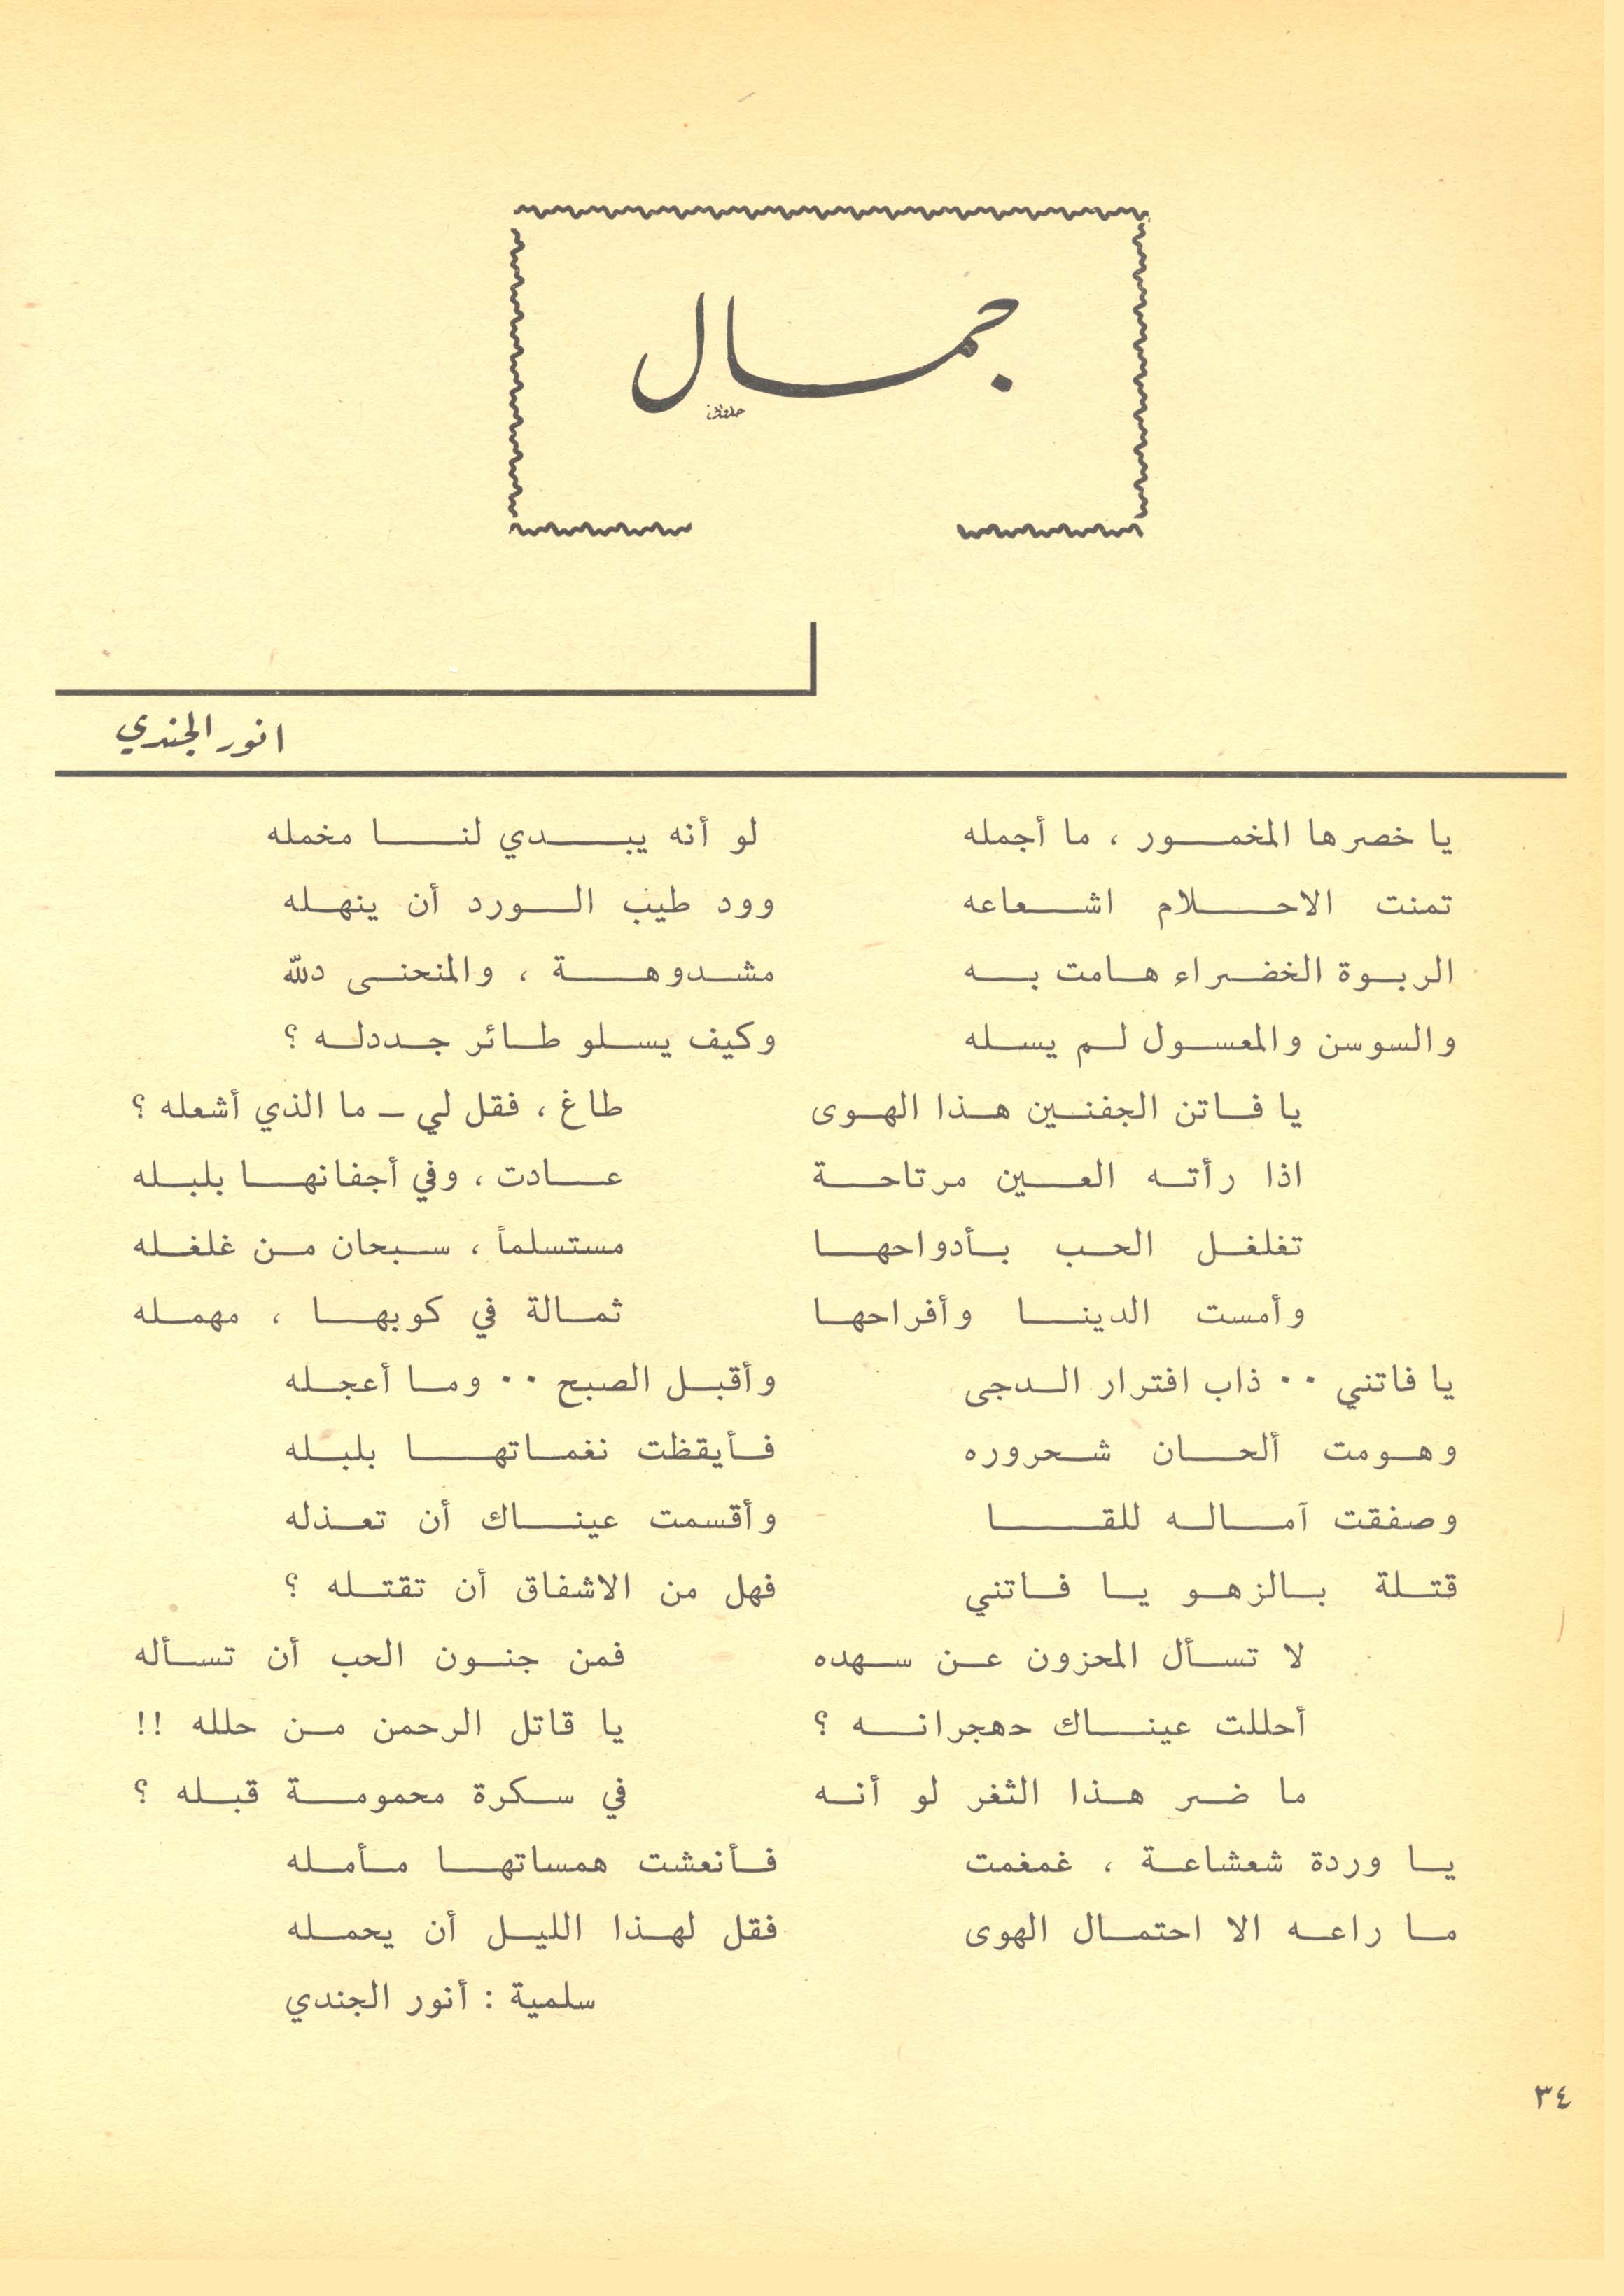 جمال
انور الجندي
يا خصرها المخمور ، ما أجمله لو أنه يبدي لنا مخمله
تمنت الاحلام اشعاعه وود طيب الورد أن ينهله
الربوة الخضراء هامت به مشدوهة ، والمنحنى دلله
والسوسن والمعسول لم يسله وكيف يسلو طائر جددله ؟
يا فاتن الجفنين هذا الهوى طاغ ، فقل لي – ما الذي أشعله ؟
اذا رأته العين مرتاحة عادت ، وفي أجفانها بلبله
تغلغل الحب بأدواحها مستسلماً ، سبحان من غلغله
وأمست الدينا وأفراحها ثمالة في كوبها ، مهمله
يا فاتني .. ذاب افترار الدجى وأقبل الصبح .. وما أعجله
وهومت ألحان شحروره فأيقظت نغماتها بلبله
وصفقت آماله للقا وأقسمت عيناك أن تعذله
قتلة بالزهو يا فاتني فهل من الاشفاق أن تقتله ؟
لا تسأل المحزون عن سهده فمن جنون الحب أن تسأله
أحللت عيناك دهجرانه ؟ يا قاتل الرحمن من حلله !!
ما ضر هذا الثغر لو أنه في سكرة محمومة قبله ؟
يا وردة شعشاعة ، غمغمت فأنعشت همساتها مأمله
ما راعه الا احتمال الهوى فقل لهذا الليل أن يحمله
سلمية : أنور الجندي
٣٤